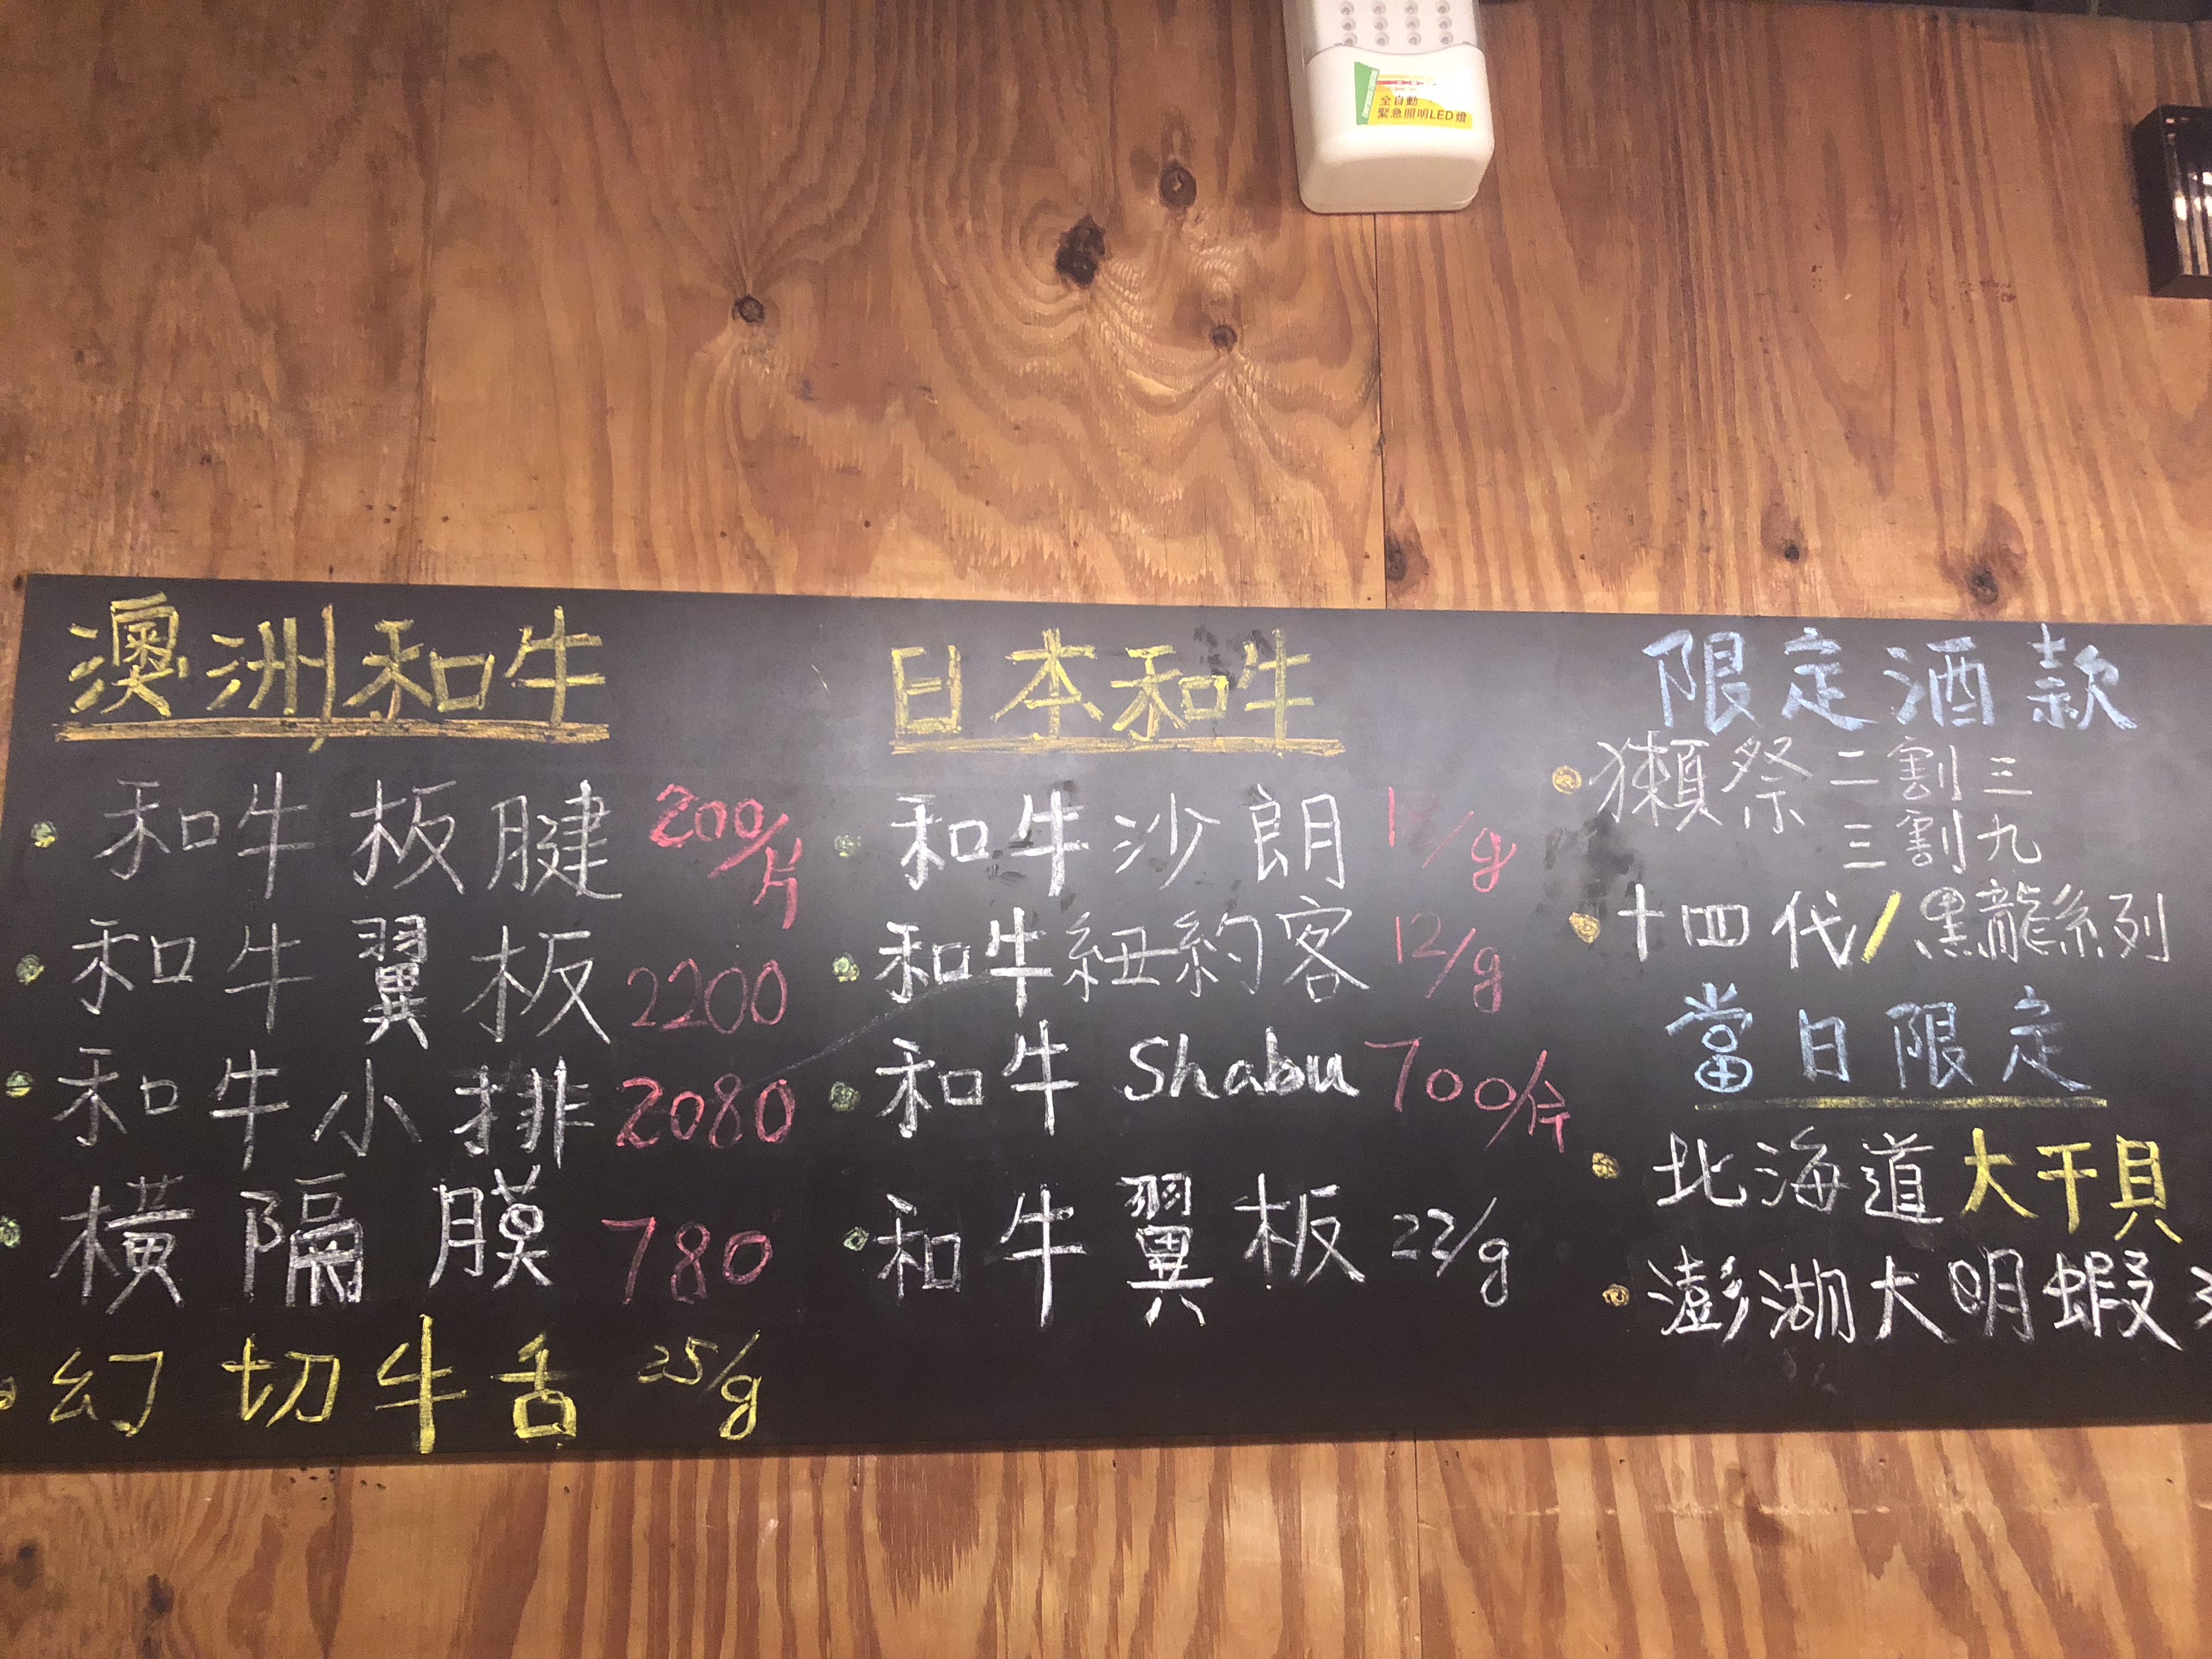 全自動
緊急照明LED燈
澳洲和牛
和牛板腱 200/片
和牛翼板 2200
和牛小排 2080
橫隔膜 780
幻切牛舌 25/g
日本和牛
和牛沙朗 /g
和牛紐約客 12/g
和牛Shabu 700/片
和牛翼板 22/g
限定酒款
獺祭 二割三
三割九
十四代/黑龍系列
當日限定
北海道大干貝
澎湖大明蝦